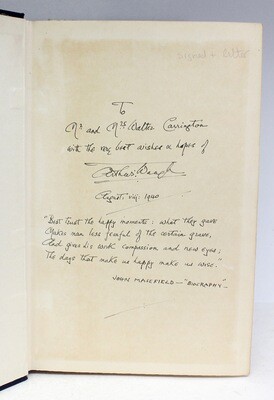 signed + letter
To
Mr. and Mrs. Walter Carrington
with the very best wishes & hopes of
Arthur Waugh
August: viij: 1940
"Best trust the happy moments: what they gave
Makes man less fearful of the certain grave,
And gives his work compassion and new eyes;
The days that make us happy make us wise."
JOHN MASEFIELD — "BIOGRAPHY".